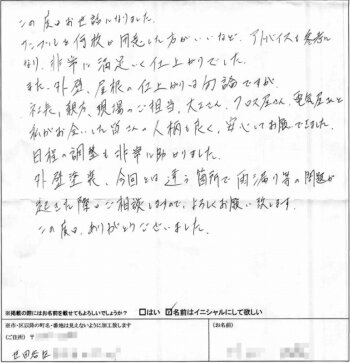 この度はお世話になりました。
サンプルを何枚か用意した方がいいなど、アドバイスも参考に
なり、非常に満足いく仕上がりでした。
また、外壁、屋根の仕上がりは勿論ですが
社長、親方、現場のご担当、大工さん、クロス屋さん、電気屋さんと
私がお会いした皆さんの人柄も良く、安心してお願いできました。
日程の調整も非常に助かりました。
外壁塗装、今回とは違う箇所で雨漏り等の問題が
起きた際はご相談しますので、よろしくお願い致します。
この度は、ありがとうございました。
※掲載の際にはお名前を載せてもよろしいでしょうか? □はい ☑名前はイニシャルにして欲しい
※市・区以降の町名・番地は見えないように加工致します
(ご住所) 〒
(お名前)
世田谷区